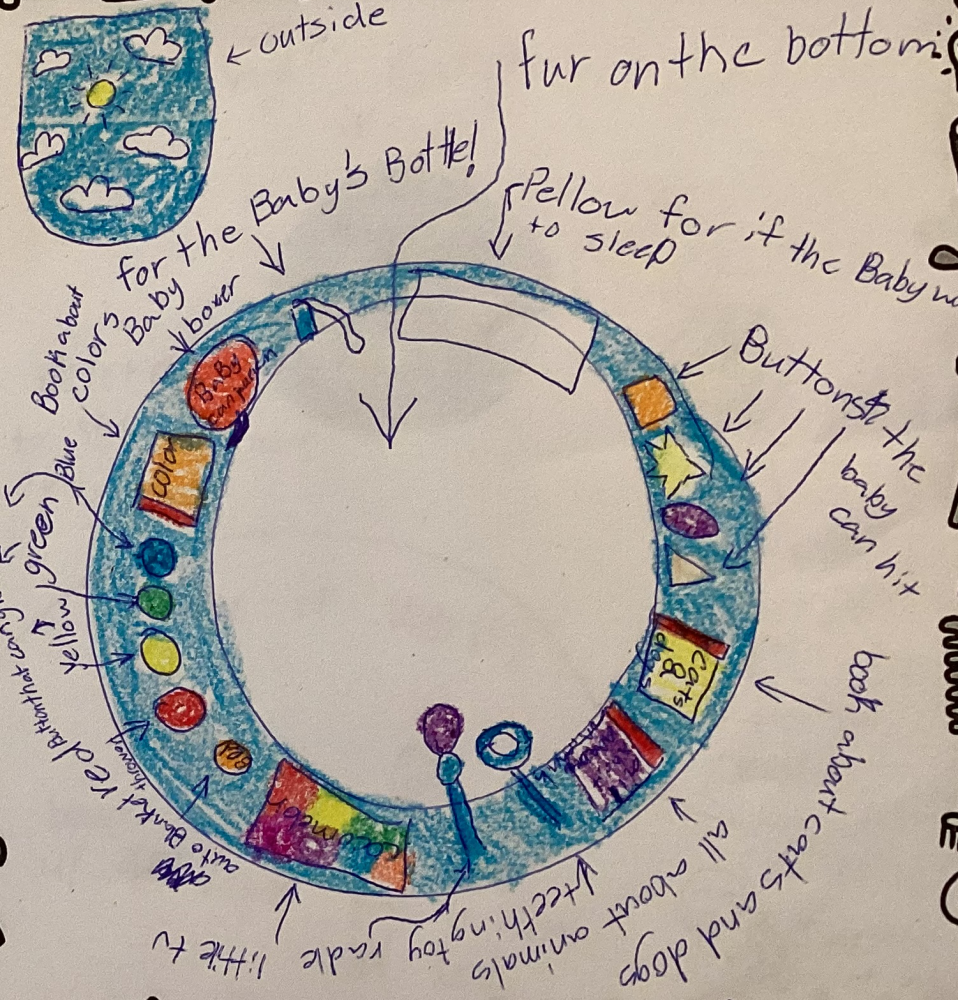 outside
fur on the bottom
for the Baby's Bottle!
Pellow for if the Baby
to sleep
Baby
boxer
Book about
colors
Buttons the
baby
can hit
Baby
color
Blue
green
yellow
red
Button that can
cats
&
dogs
book about cats and dogs
all about animals
teething toy
radle
little tv
auto Blanket